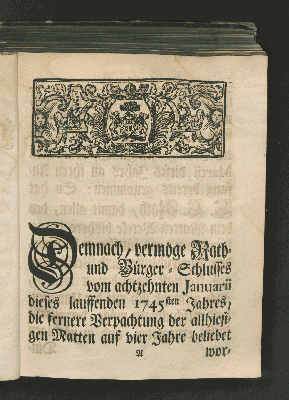 Demnach, vermöge Rath-
und Bürger-Schlusses
vom achtzehnten Januarii
dieses lauffenden 1745sten Jahres,
die fernere Verpachtung der allhiesi-
gen Matten auf vier Jahre beliebet
A wor-